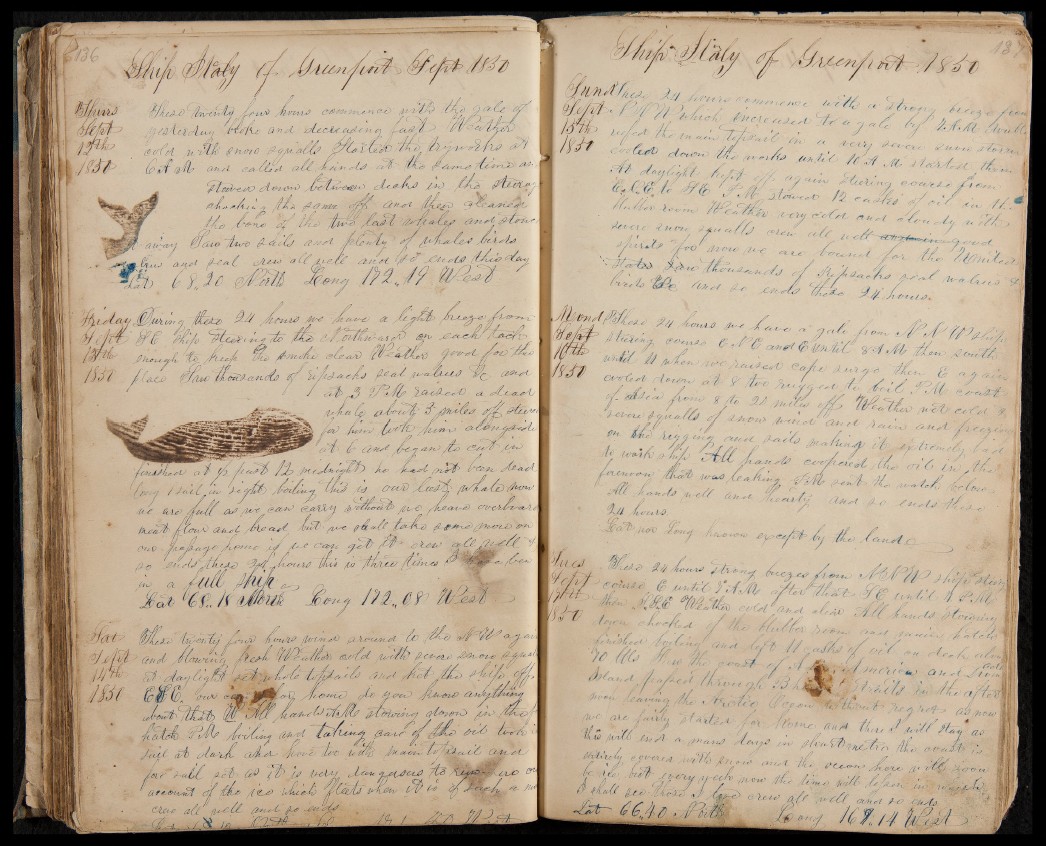 136
Ship Italy of Greenport Sept 1850
Thurs
Sept
12th
1850
These twenty four hours commence with the gale of
yesterday broke and decreasing fast Weather
cold with snow squalls Started the tryworks at
6 A M and called all hands at the same time
stowed down between decks in the steerage
chocking the same off and then cleaned
the bone of the two last whales and stowed
away Saw two sails and plenty of whales birds
and seal crew all well and so ends this day
Lat 68,,20 North Long 172,,19 West
Friday
Sept
13th
1850
During these 24 hours we have a light breeze from
S E Ship Steering to the Northward on each tack
enough to keep the smoke clear Weather good for this
place Saw thousands of ripsacks seal walrus &c and
at 3 P M raised a dead
whale about 3 miles off steered
for him took him alongside
at 6 and began to cut in
finished at ½ past 12 midnight he had not been dead
long 1 sail in sight boiling this is our last whale now
we are full as we can carry without we heave overboard
meat flour and bread but we shall take some more on
our passage home if we can get it crew all well &
so ends these 24 hours this is three times I have been
in a full ship
Lat 68,,18 North Long 172,,08 West
Sat
Sept
14th
1850
These twenty four hours wind around to the N W again
and blowing fresh Weather cold with severe snow squalls
at daylight set whole topsails and kept the ship off
E S E our home do you know anything
about that W All hands A M stowing down in the
hatch P M boiling and taking care of the oil took in
sail at dark and have too with main topsail and
fore sail set as it is very dangerous to run
account of the ice which floats when it is of such a
crew all well and so ends
137
Ship Italy of Greenport 1850
Sund
Sept
15th
1850
These 24 hours commence with a strong breeze from
N N W which increased to a gale by 7 A M double
reefed the main topsail in a very severe snow storm
cooled down the works until 10 A M started them
At daylight kept off again steering course from
E S E to S E P M stowed 12 casks of oil in the
blubber room Weather very cold and cloudy with
severe snow squalls crew all well and in good
spirits for now we are bound for the United
States Saw thousands of Ripsacks seal walrus &
birds &c and so ends these 24 hours
Mond
Sept
16th
1850
These 24 hours we have a gale from N N W ship
steering course E N E and E until 8 A M then south
until 11 when we raised cape surge then E again
cooled down at 8 too rugged to boil P M coast
of Asia from 8 to 20 miles off Weather wet cold &
severe squalls of snow wind and rain and freezing
on the rigging and sails making it extremely bad
to work ship All hands coopered the oil in the
forenoon that was leaking P M sent the watch below
All hands well and hearty and so ends these
24 hours
Lat nor Long known except by the land
Tues
Sept
17th
1850
These 24 hours strong breezes from N N W ship steering
course E until 3 A M after that S E until 1 P M
then S S E Weather cold and clear All hands stowing
down chocked off the blubber room and main hatch
finished boiling and left 11 casks of oil on deck
70 bbls Saw the coast of America and
Island passed through Straits in the after
noon leaving the Arctic Ocean without regret as now
we are fairly started for Home and there I will stay as
this will end a mans days in short metre the coast is
entirely covered with snow and the ocean shore will soon
be ice but every week now the time will lessen in
I shall see those I love crew all well and so ends
Lat 66,,40 North Long 168,,14 West